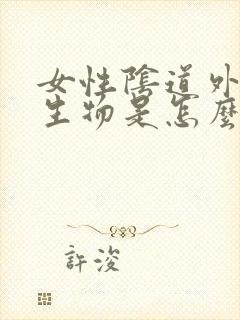 女性陰道外
生物是怎麼
許浚